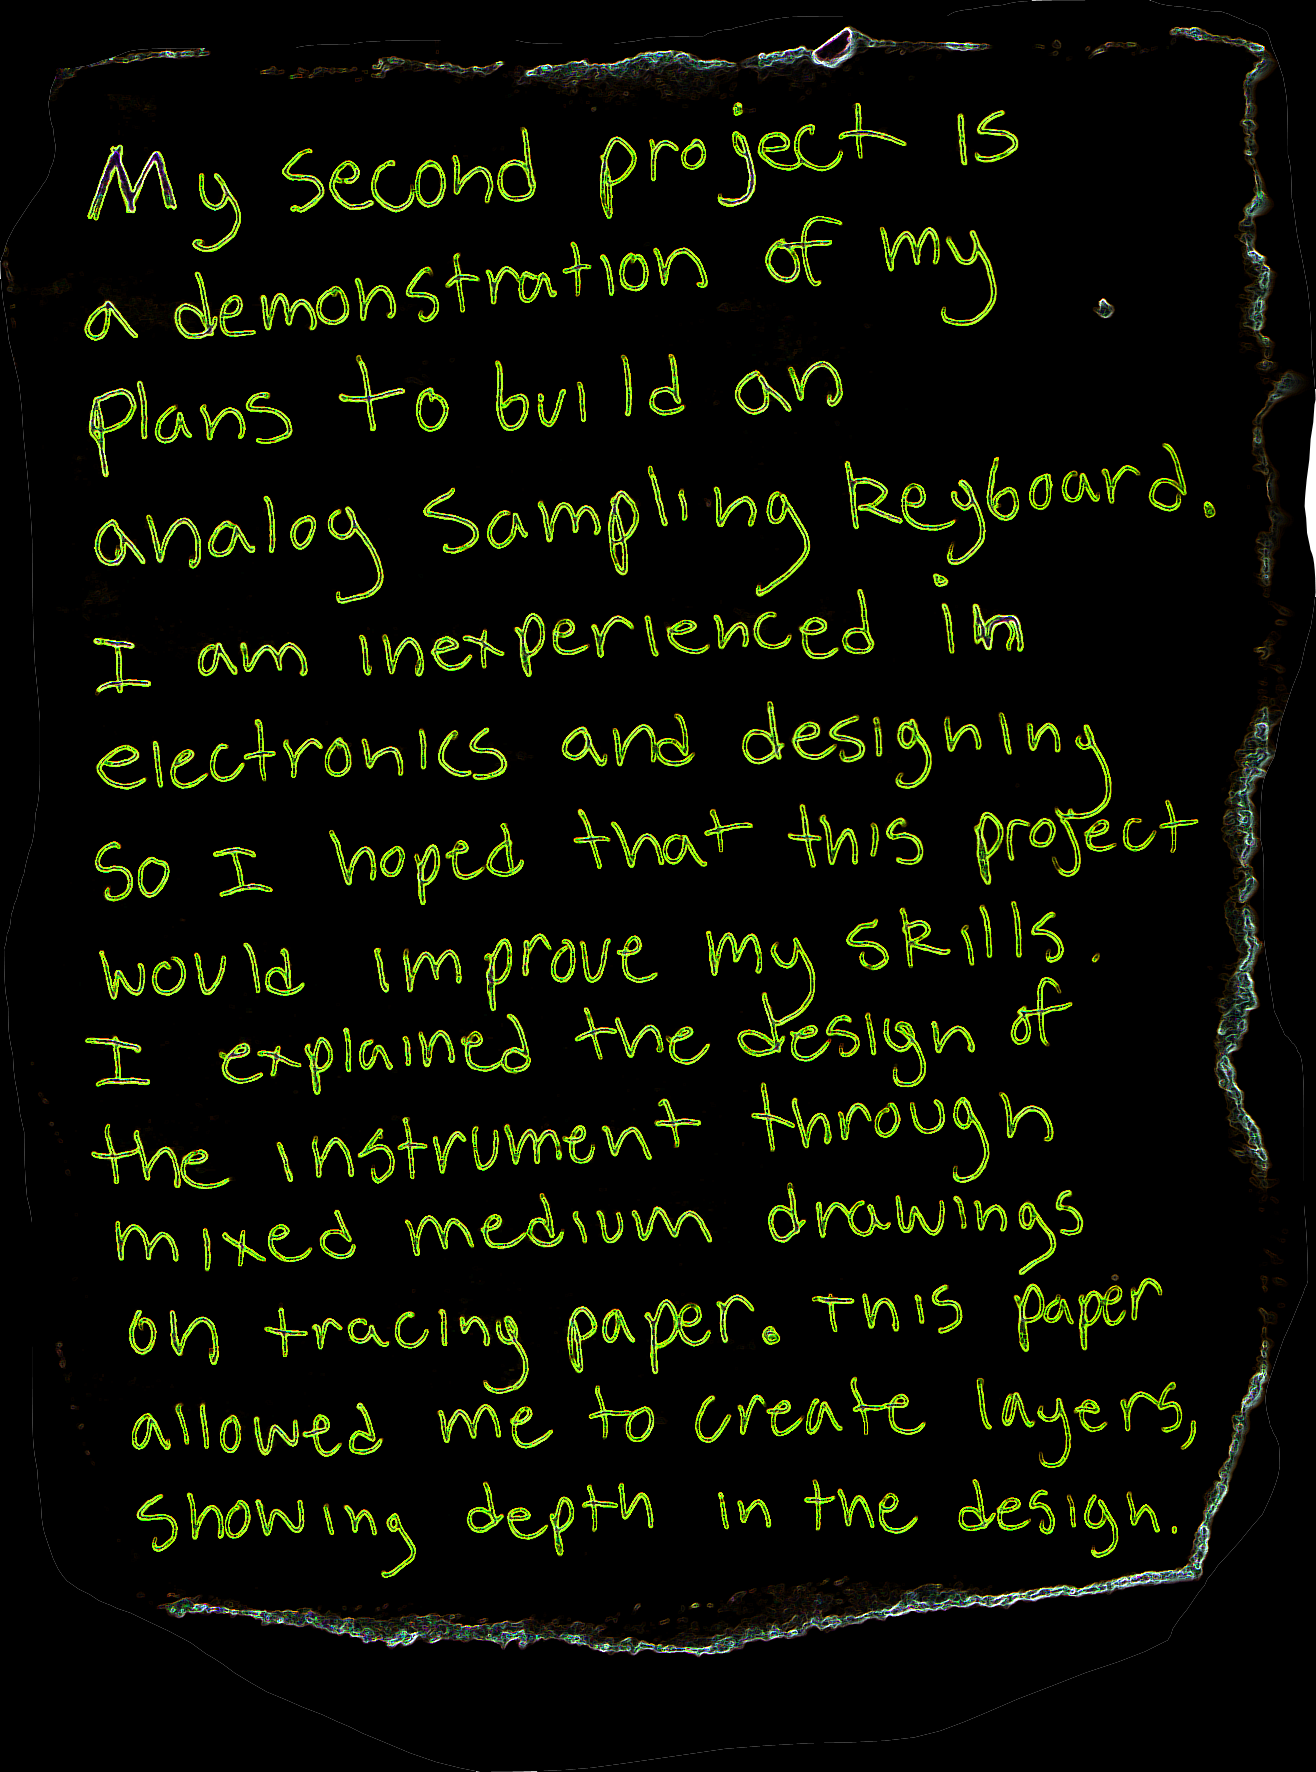 My second project is
a demonstration of my
plans to build an
analog sampling keyboard.
I am inexperienced in
electronics and designing
so I hoped that this project
would improve my skills.
I explained the design of
the instrument through
mixed medium drawings
on tracing paper. This paper
allowed me to create layers,
showing depth in the design.